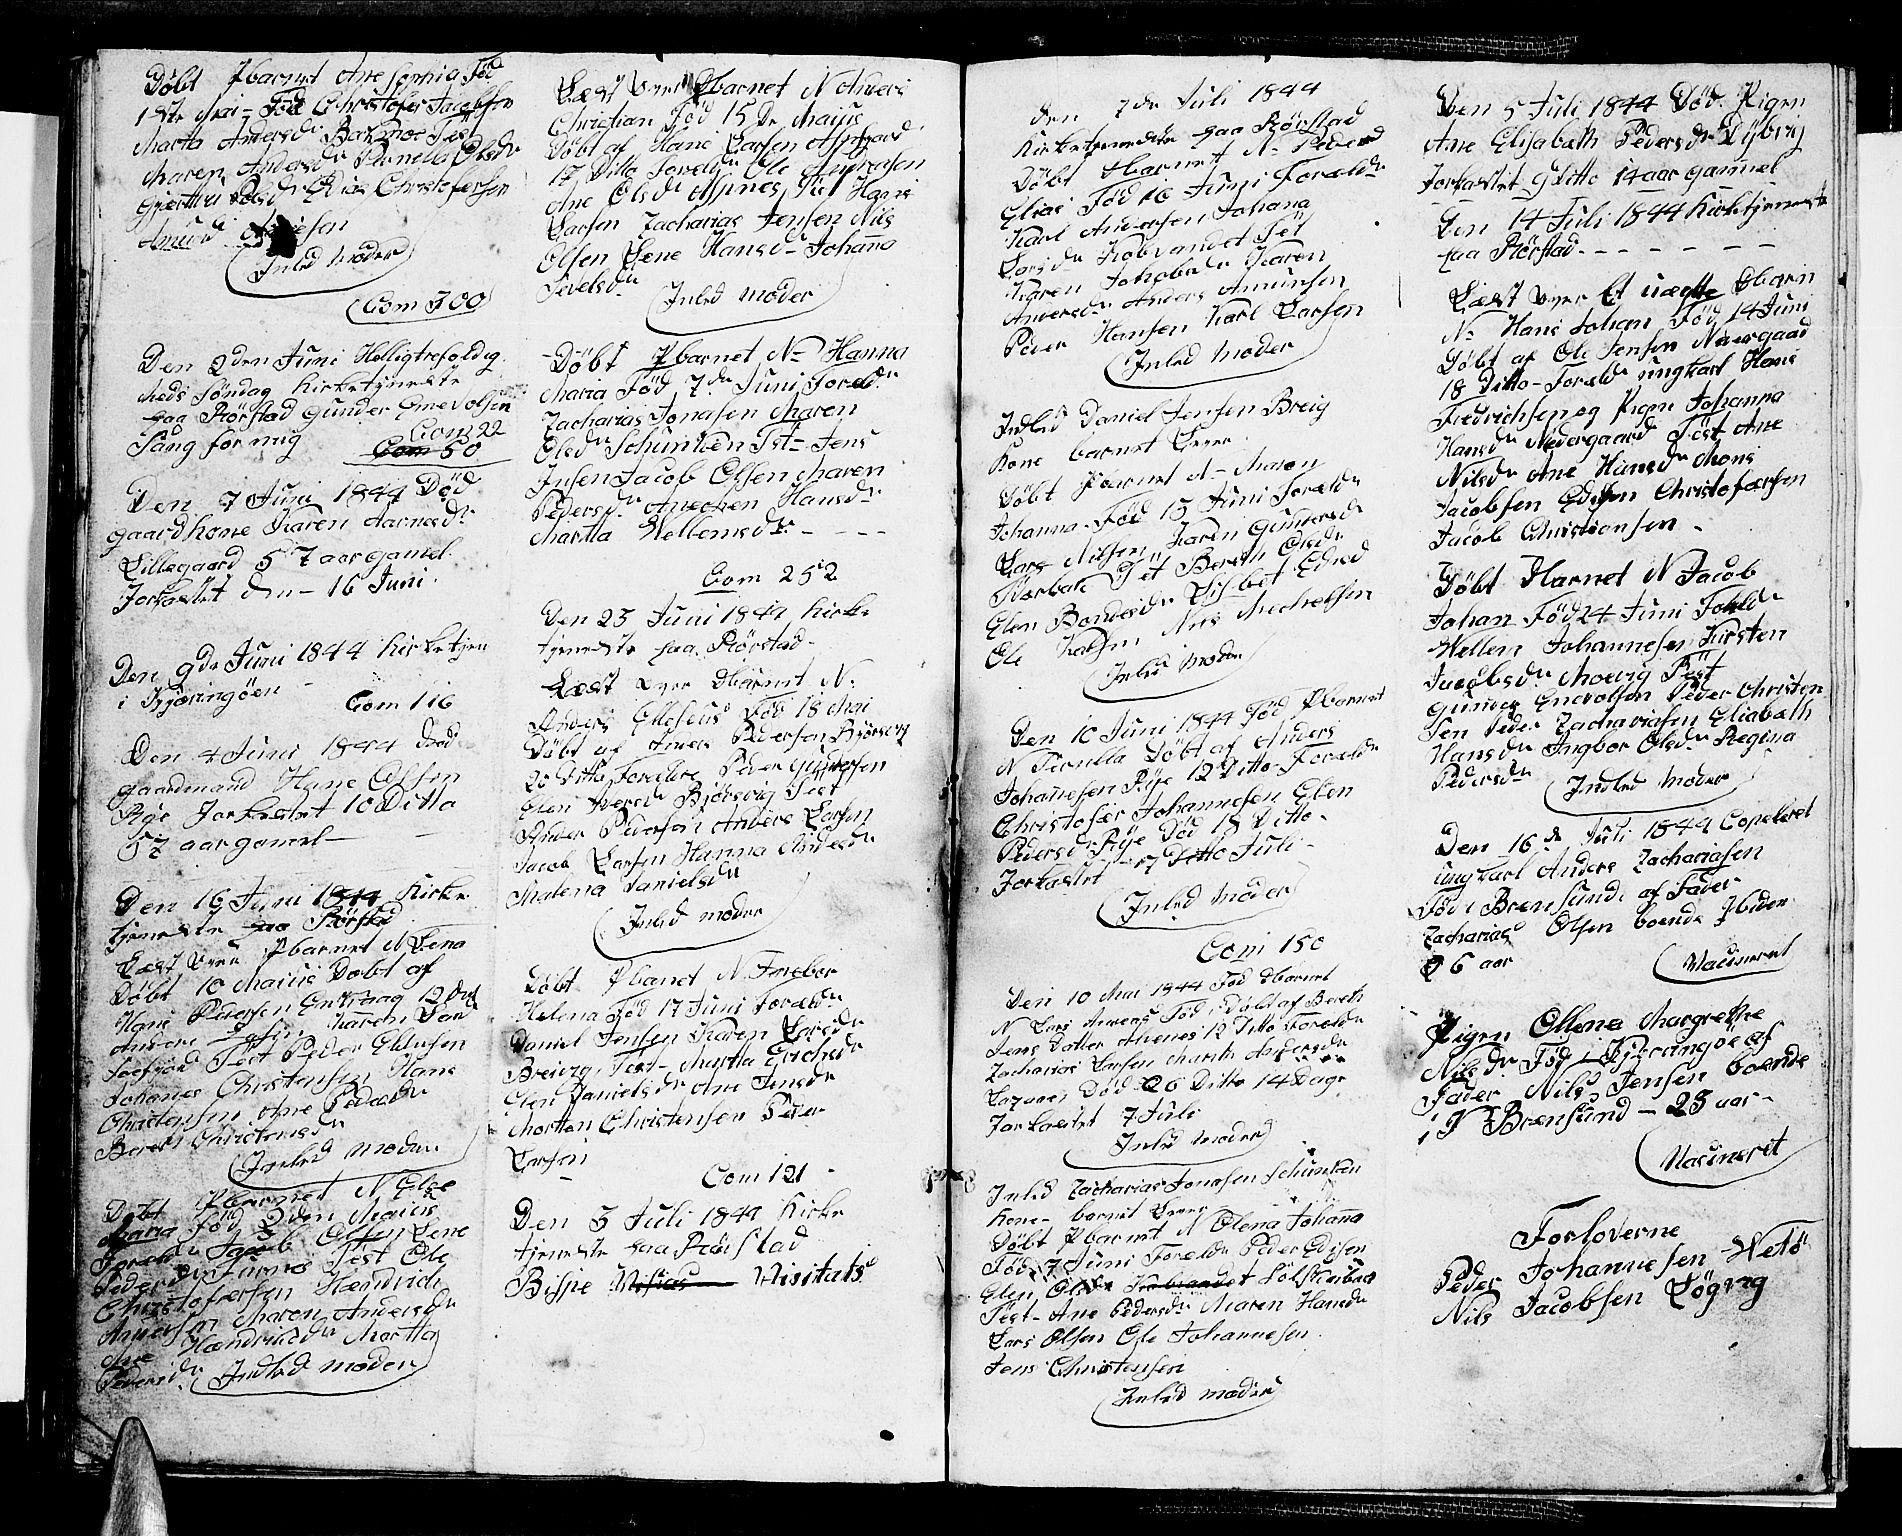 Døbt Pbarnet Ane Sophia Fød
1ste Mai - Fod Christofer Jacobsen
Marta Andersdr Bakmoe Test
Maren Andersdr Pernella Olsdr
Gjertru Olsdr Edias Christofersen
Amund
Inled Moder
Com 300
Den 2den Juni Helligtrefoldig
heds Søndag Kirketjeneste
paa Rørstad Gunder Enevolsen
Sang for mig Com 22
Com 50
Den 7 Juni 1844 Død
Gaardkone Karen Aarnesdr
Lillegaard 57 aar gamel
Jorkastet den - 16 Juni
Den 9de Juni 1844 Kirketjen
i Kjæringøen
Com 116
Den 4 Juni 1844 Døde
gaardmand Hans Olsen
Røe Jorkastet 10 Ditto
57 aar gamel -
Den 16 Juni 1844 Kirke
tjeneste paa Rørstad
Læst over Pbarnet N Lena
Døbt 10 Maius Døbt af
Hans Pedersen 12 Dit
Anders Karen Lars
Test Peder Ellefsen
Johanes Christensen Hans
Christensen Ane Pedersdr
Beret Christensdr
Inled Moder
Døbt Pbarnet N Else
Maria Fød 2den Maius
Foreldr Jacob Olsen Lene
Pedersdr Test Ole
Christofersen Hendrich
Andersen Maren Andersdr
Ane Hendrichsdr Martha
Pedersdr Indled Moder
Læst over Dbarnet N Anders
Christian Fød 15de Maijus
Døbt af Hans Larsen
17 Ditto Foreldr Ole Andreasen
Ane Olsdr Test Hans
Larsen Zacharias Jensen Nils
Olsen Lene Hansdr Johana
Sevelsdr
Inled Moder
Døbt Pbarnet N- Hanna
Maria Fød 7de Juni Foreldr
Zacharias Jonasen Maren
Olsdr Schunken Tst - Jens
Jensen Jacob Olsen Maren
Pedersdr Anechen Hansdr
Martha Wellemsdr - - - -
Com 252
Den 23 Juni 1844 Kirke
tjeneste paa Rørstad -
Læst over Dbarnet N.
Anders Elleseus Fød 18 Mai
Døbt af Anders Pedersen Bjørsvig
20 Ditto Foreldre Peder Gundersen
Elen Iversdr Bjørsvig Test
Ander Pedersen Anders Larsen
Jacob Larsen Hanna Andersdr
Malena Danielsdr
Inled moder
Døbt Pbanet N. Ingebor
Helena Fød 17 Juni Foreldr
Daniel Jensen Karen Larsdr
Breivig, Test - Martha Erichsdr
Elen Danielsdr Ane Jensdr
Morten Christensen Peder
Larsen
Com 121 -
Den 3 Juli 1844 Kirke
tjeneste paa Rørstad
Bispe Visitats
den 7de Juli 1844
Kirketjeneste paa Rørstad
Døbt Dbarnet N- Peder
Elias Fød 16 Juni Foreldr
Karl Andersen Johana
Larsdr Kobvandet Tst
Karen Johabsdr Karen
Andersdr Anders Amunsen
Peder Hansen Karl Larsen
Inled Moder
Inled Daniel Jensen Breig
Kone barnet Over
Døbt Pbarnet N- Maren
Johanna - Fød 15 Juni Foreldr
Lars Nilsen Karen Gundersdr
Tst Bereth Olsdr
Elen Bendixdr Lisbet Edisd
Ole Nils Michelsen
Inled Moder
Den 10 Juni 1844 Fød Pbarnet
N Pernilla Døbt af Anders
Johanesen Røe 12 Ditto - Foreldr
Christofær Johannesen Elen
Pedersdr Røe Død 18 Ditto -
Jorkastet - 7 Ditto Juli -
Inled Moder
Com 150
Den 10 Mai 1844 Fød Dbarnet
N Lars Fød i Døbt af Bereth
Jens Datter 12 Ditto Foreldr
Zacharias Larsen Marith Andersdr
Død 26 Ditto 14 Dage
Jorkastet 7 Juli
Inled Moder
Inled Zacharias Jonasen Schunken
Kone - barnet Over
Døbt Pbarnet N Olena Johana
Fød 7 Juni Foreldr Peder Edisen
Elen Olsdr Kobvandet
Test - Ane Pedersdr Maren Hansdr
Lars Olsen Ole Johannesen
Jens Christensen
Inled Moder
Den 5 Juli 1844 Død Pigen
Ane Elisabeth Pedersdr Dybvig
Jorkastet 9 Ditto 14 aar gammel
Den 14 Juli 1844 Kirketjeneste
paa Rørstad - - - - - -
Læst over Et uægte Dbarn
N- Hans Johan Fød 14 Juni
Døbt af Ole Jensen Nævergaard
18 Ditto - Foreldr ungkarl Hans
Fredrichsen og Pigen Johanna
Hansdr Nedergaard Test Ane
Nilsdr Ane Hansdr Mons
Jacobsen Christofærsen
Jacob Christiansen -
Døbt Dbarnet N Jacob
Johan Fød 24 Juni Foreldr
Wellem Johannesen Kirsten
Jacobsdr Moevig Test
Gunder Enevolsen Peder Christen
sen Peder Zachariasen Elisabeth
Hansdr Ingbor Olsdr Regina
Pedersdr
Indled Moder
Den 16de Juli 1844 Copeleret
ungkarl Anders Zachariasen
Fød i Brensund af Fader
Zacharias Olsen boende Ibiden
26 aar
Vacineret
Pigen Ellene Margrethe
Nilsdr Fød i Kjeringøe af
Fader Nils Jensen boende
i N Brensund - 23 aar -
Vacineret
Forloverne
Peder Johannesen Wetø
Nils Jacobsen Løgvig